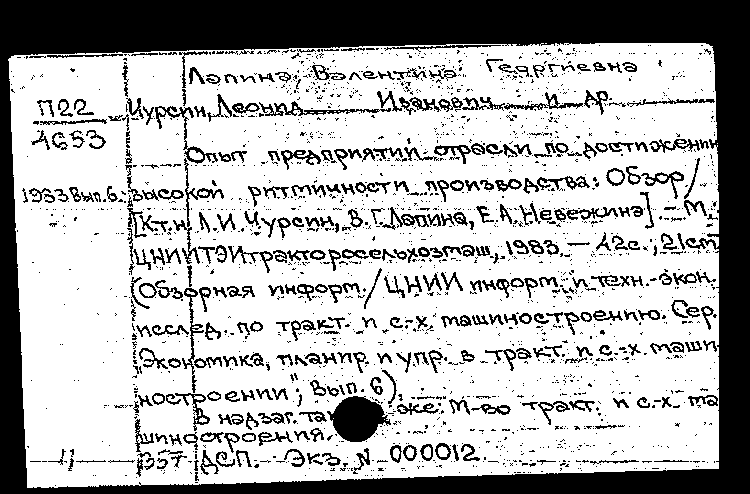 Лапина, Валентина Георгиевна
П22 Чурсин, Леонид Иванович и др
4653
Опыт предприятий отрасли по достижении
1983 Вып.6. высокой ритмичности производства: Обзор/
[К.т.н. Л.И. Чурсин, В.Г. Лапина, Е.А. Невежина]. - М.:
ЦНИИТЭИтракторосельхозмаш, 1983. - 42с.; 21см
(Обзорная информ. / ЦНИИ информ. и техн.-экон.
исслед. по тракт. и с.-х. машиностроению. Сер.
"Экономика, планир. и упр. в тракт. и с.-х. маши-
ностроении"; Вып. 6).
В надзаг. та же: М-во тракт. и с.-х. ма
шиностроения.
11 357 ДСП. Экз. N 000012.